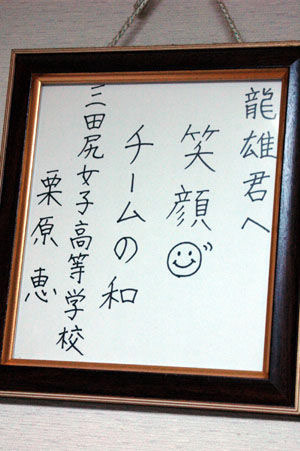 龍雄君へ
笑顔
チームの和
三田尻女子高等学校
栗原恵